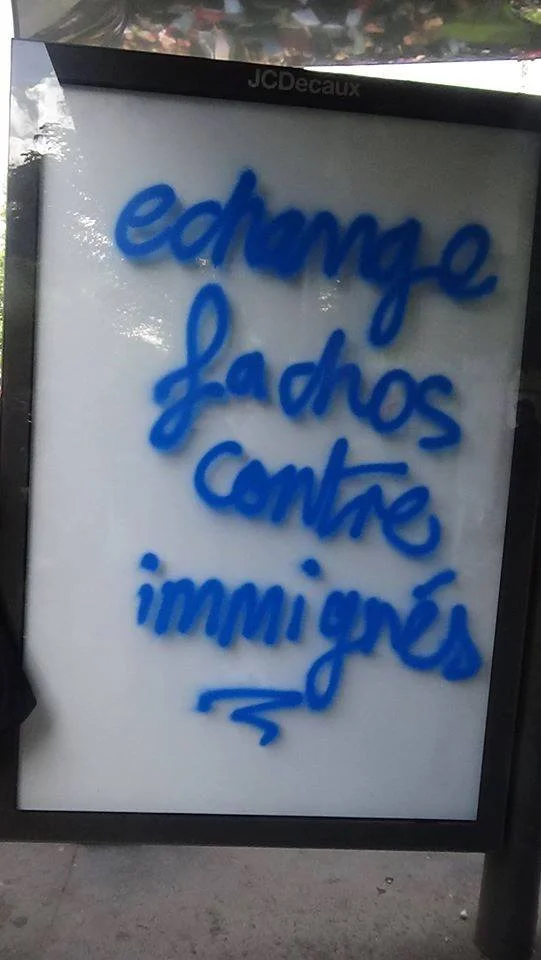 JCDecaux
echange
fachos
contre
immigrés